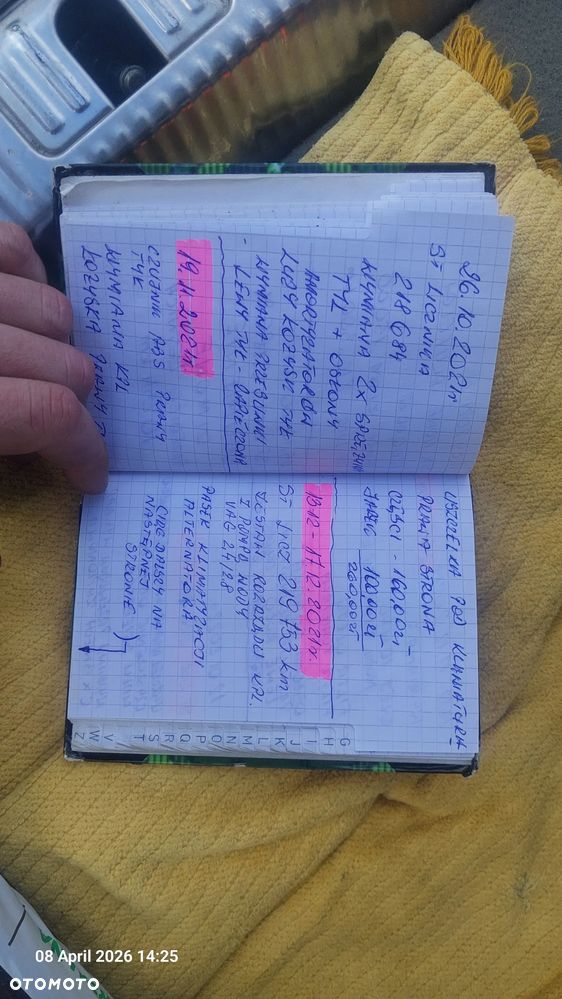 26.10.2021r
ST LICZNIKA
218 684
WYMIANA 2X SPRĘŻYNY
TYŁ + OSŁONY
AMORTYZATORÓW
LUZY ŁOŻYSK TYŁ
WYMIANA
- LEWY TYŁ -
19.11.2021r
CZUJNIK ABS PRAWY
TYŁ
WYMIANA KPL
ŁOŻYSKA PRAWY
USZCZELKA POD KLAWIATURĄ
PRAWA STRONA
CZĘŚCI - 160,00zł
100,00zł
260,00zł
13.12 - 17.12.2021r.
ST LICZ 219 753 km
ZESTAW ROZRZĄDU KPL.
I POMPA WODY
VAG 2.7/2.8
PASEK KLIMATYZACJI
ALTERNATORA
CIĄG DALSZY NA
NASTĘPNEJ
STRONIE
G
H
I
J
K
L
M
N
O
P
Q
R
S
T
V
W
Z
08 April 2026 14:25
OTOMOTO